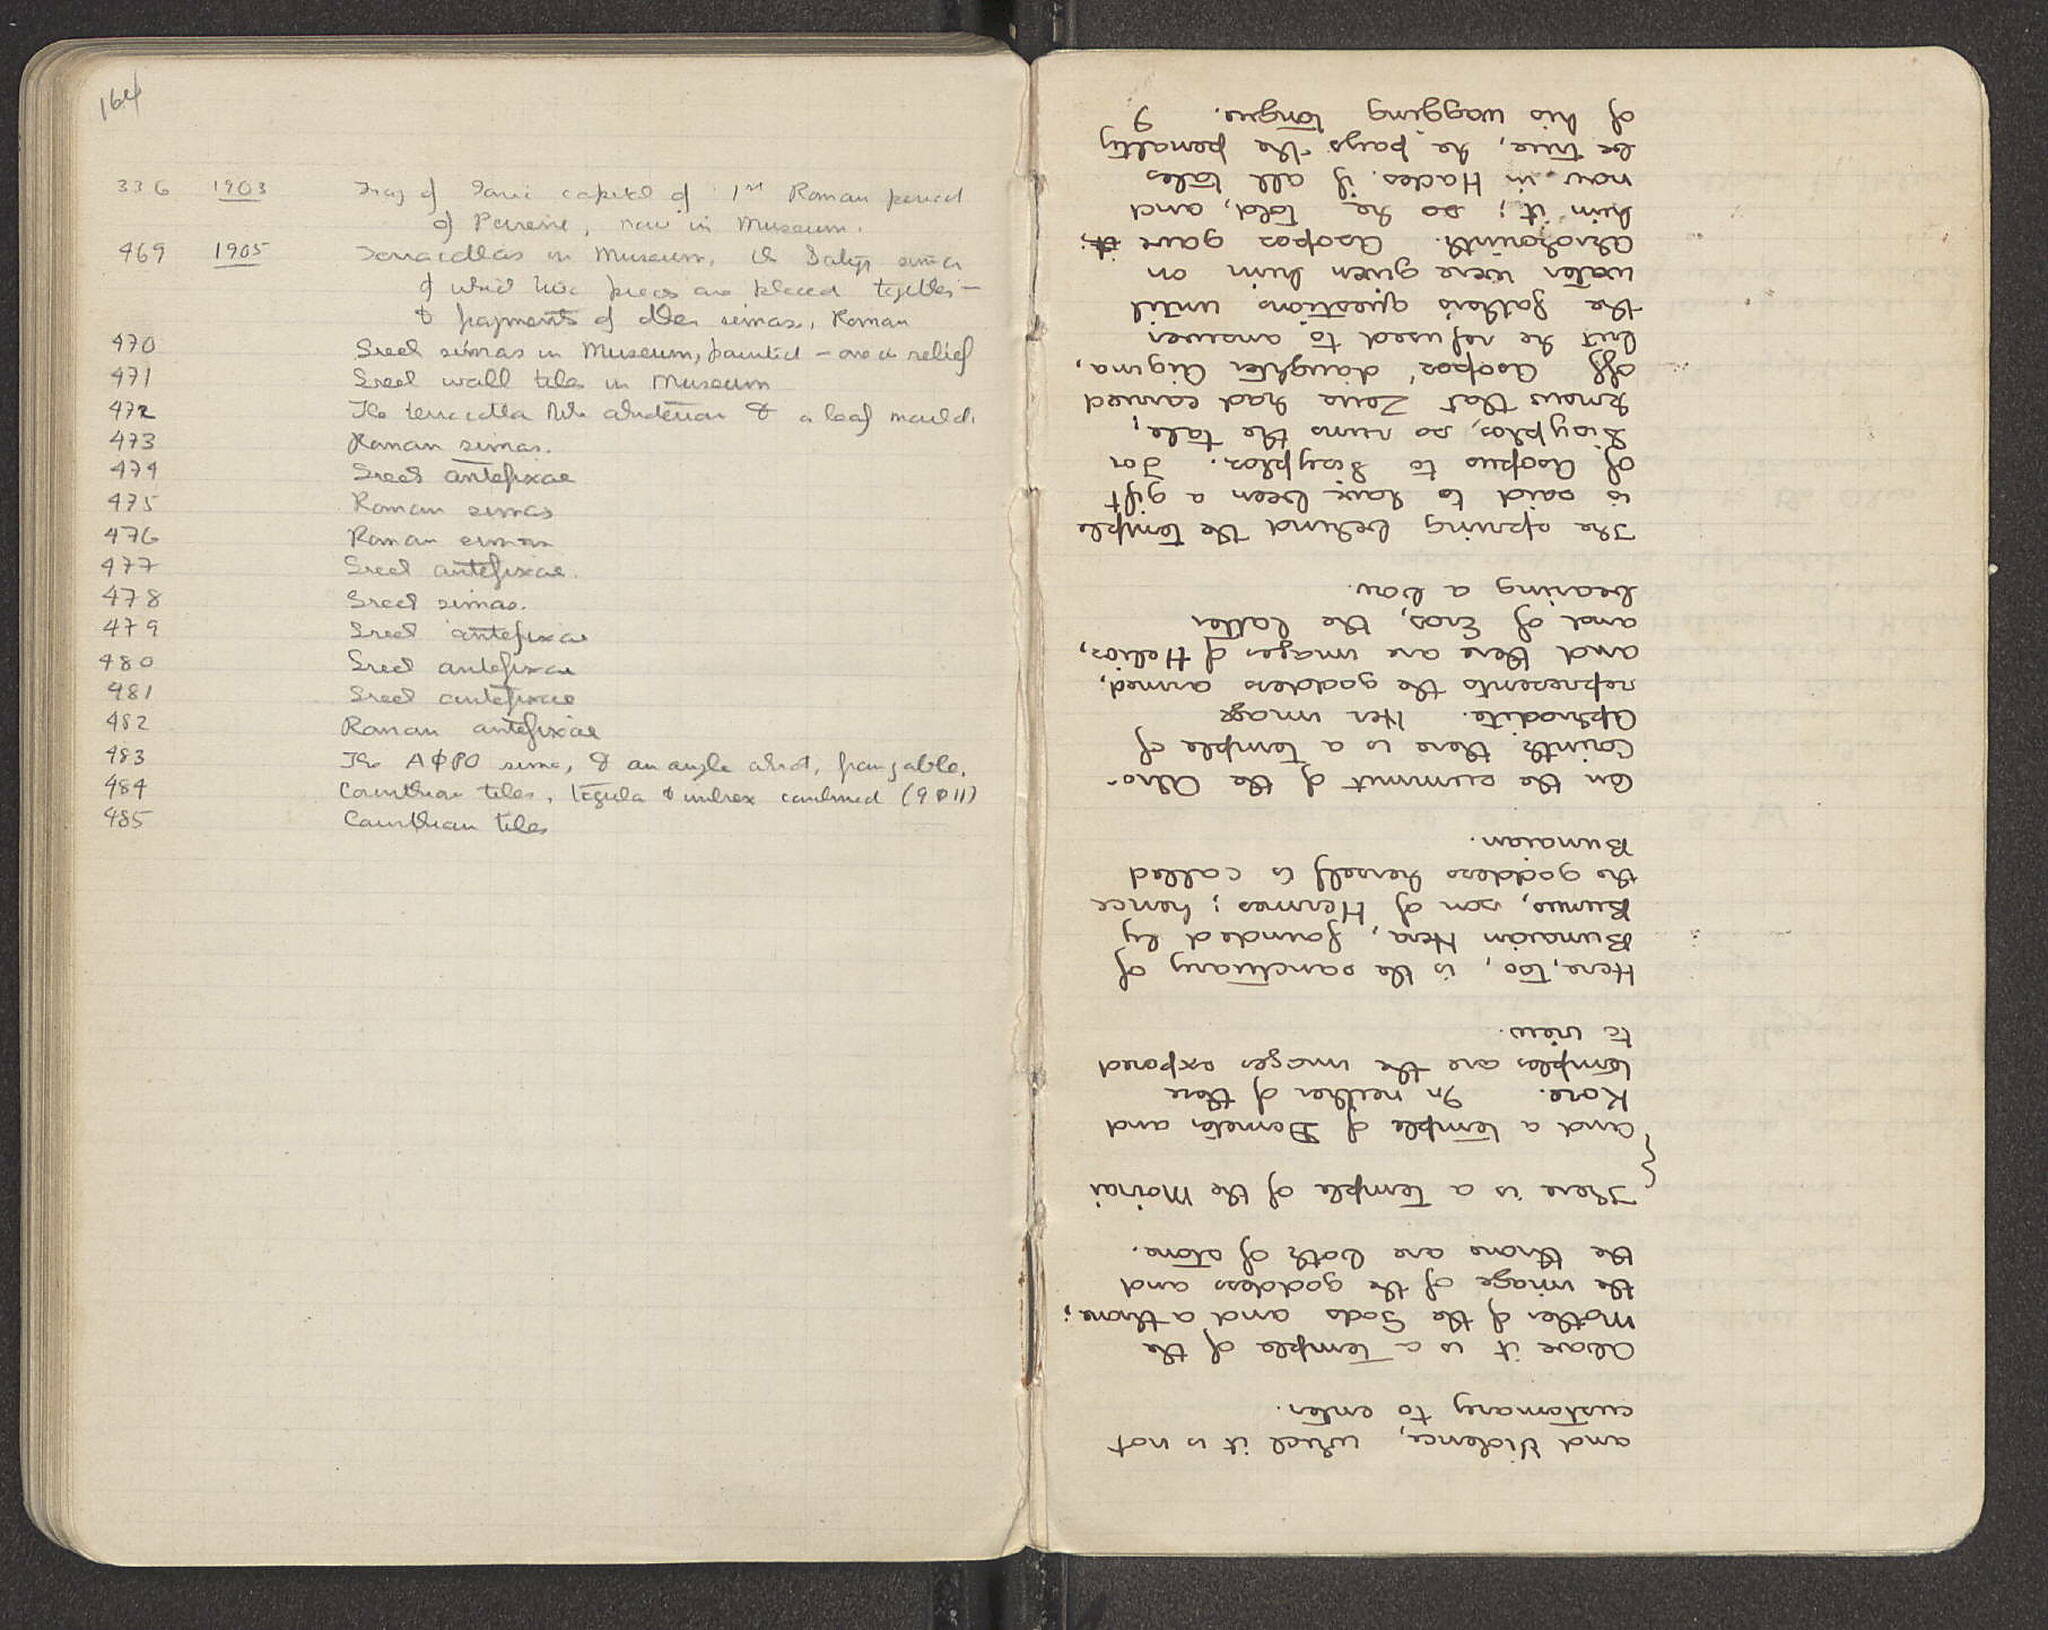 164
336 1903 Frag of Ionic capital of 1st Roman period
of Peirene, now in Museum.
469 1905 Terracottas in Museum, sima
of which two pieces are placed together —
& fragments of other simas, Roman
470 Greek simas in Museum, painted — one in relief
471 Greek wall tiles in Museum
472 The terracotta akroterion & a leaf mould.
473 Roman simas.
474 Greek antefixae
475 Roman simas
476 Roman simas
477 Greek antefixae.
478 Greek simas.
479 Greek antefixae
480 Greek antefixae
481 Greek antefixae
482 Roman antefixae
483 The ΑΦΡΟ sima, & an angle from gable.
484 Corinthian tiles, tegula & imbrex combined (9 & 11)
485 Corinthian tiles
and Violence, which it is not
customary to enter.
Above it is a temple of the
Mother of the Gods and a throne;
the image of the goddess and
the throne are both of stone.
There is a temple of the Moirai
and a temple of Demeter and
Kore. In neither of these
temples are the images exposed
to view.
Here, too, is the sanctuary of
Bunaian Hera, founded by
Bunus, son of Hermes; hence
the goddess herself is called
Bunaian.
On the summit of the Akro-
Corinth there is a temple of
Aphrodite. Her image
represents the goddess armed,
and there are images of Helios,
and of Eros, the latter
bearing a bow.
The spring behind the temple
is said to have been a gift
of Asopus to Sisyphos. For
Sisyphos, so runs the tale,
knows that Zeus had carried
off Asopos' daughter Aigina,
but he refused to answer
the father's questions until
water were given him on
Akrokorinth. Asopos gave it;
him it; so he told, and
now in Hades, if all tales
be true, he pays the penalty
of his wagging tongue. 9